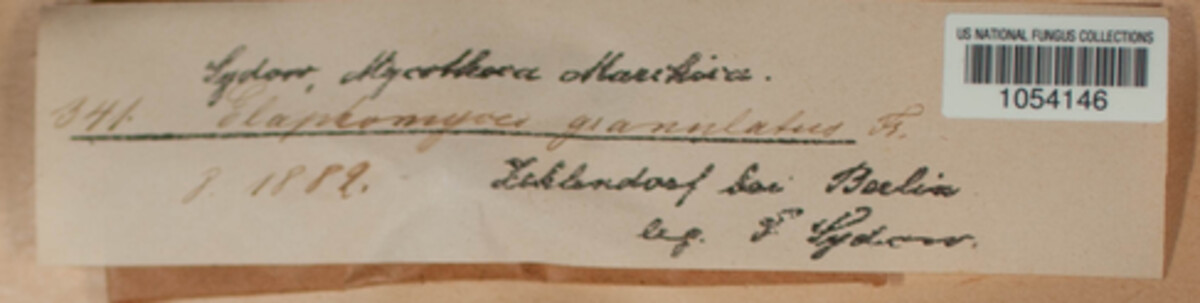 US NATIONAL FUNGUS COLLECTIONS
1054146
Sydow, Mycotheca Marchica.
341. Elaphomyces granulatus Fr.
8. 1882.
Zehlendorf bei Berlin
leg. P. Sydow.